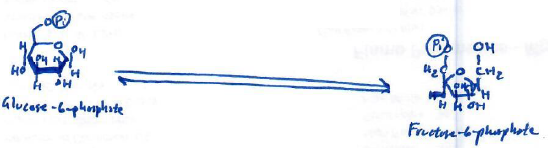 O Pi
O
H OH
OH H
HO
H OH
Glucose-6-phosphate
Pi OH
O H
H2C C-H2
O
OH
H H OH
Fructose-6-phosphate